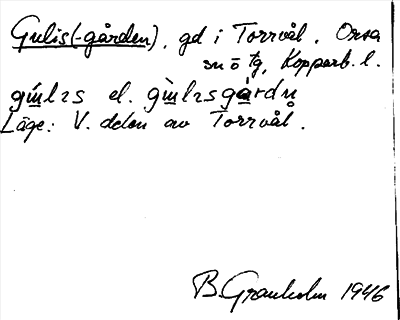 Gulis(-gården), gd i Torrvål. Orsa
sn o tg, Kopparb. l.
el.
Läge: V. delen av Torrvål.
B. Granholm 1946